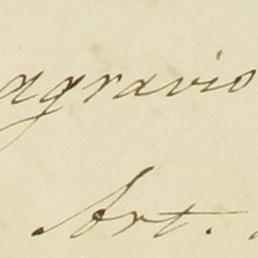 agravio
Art.